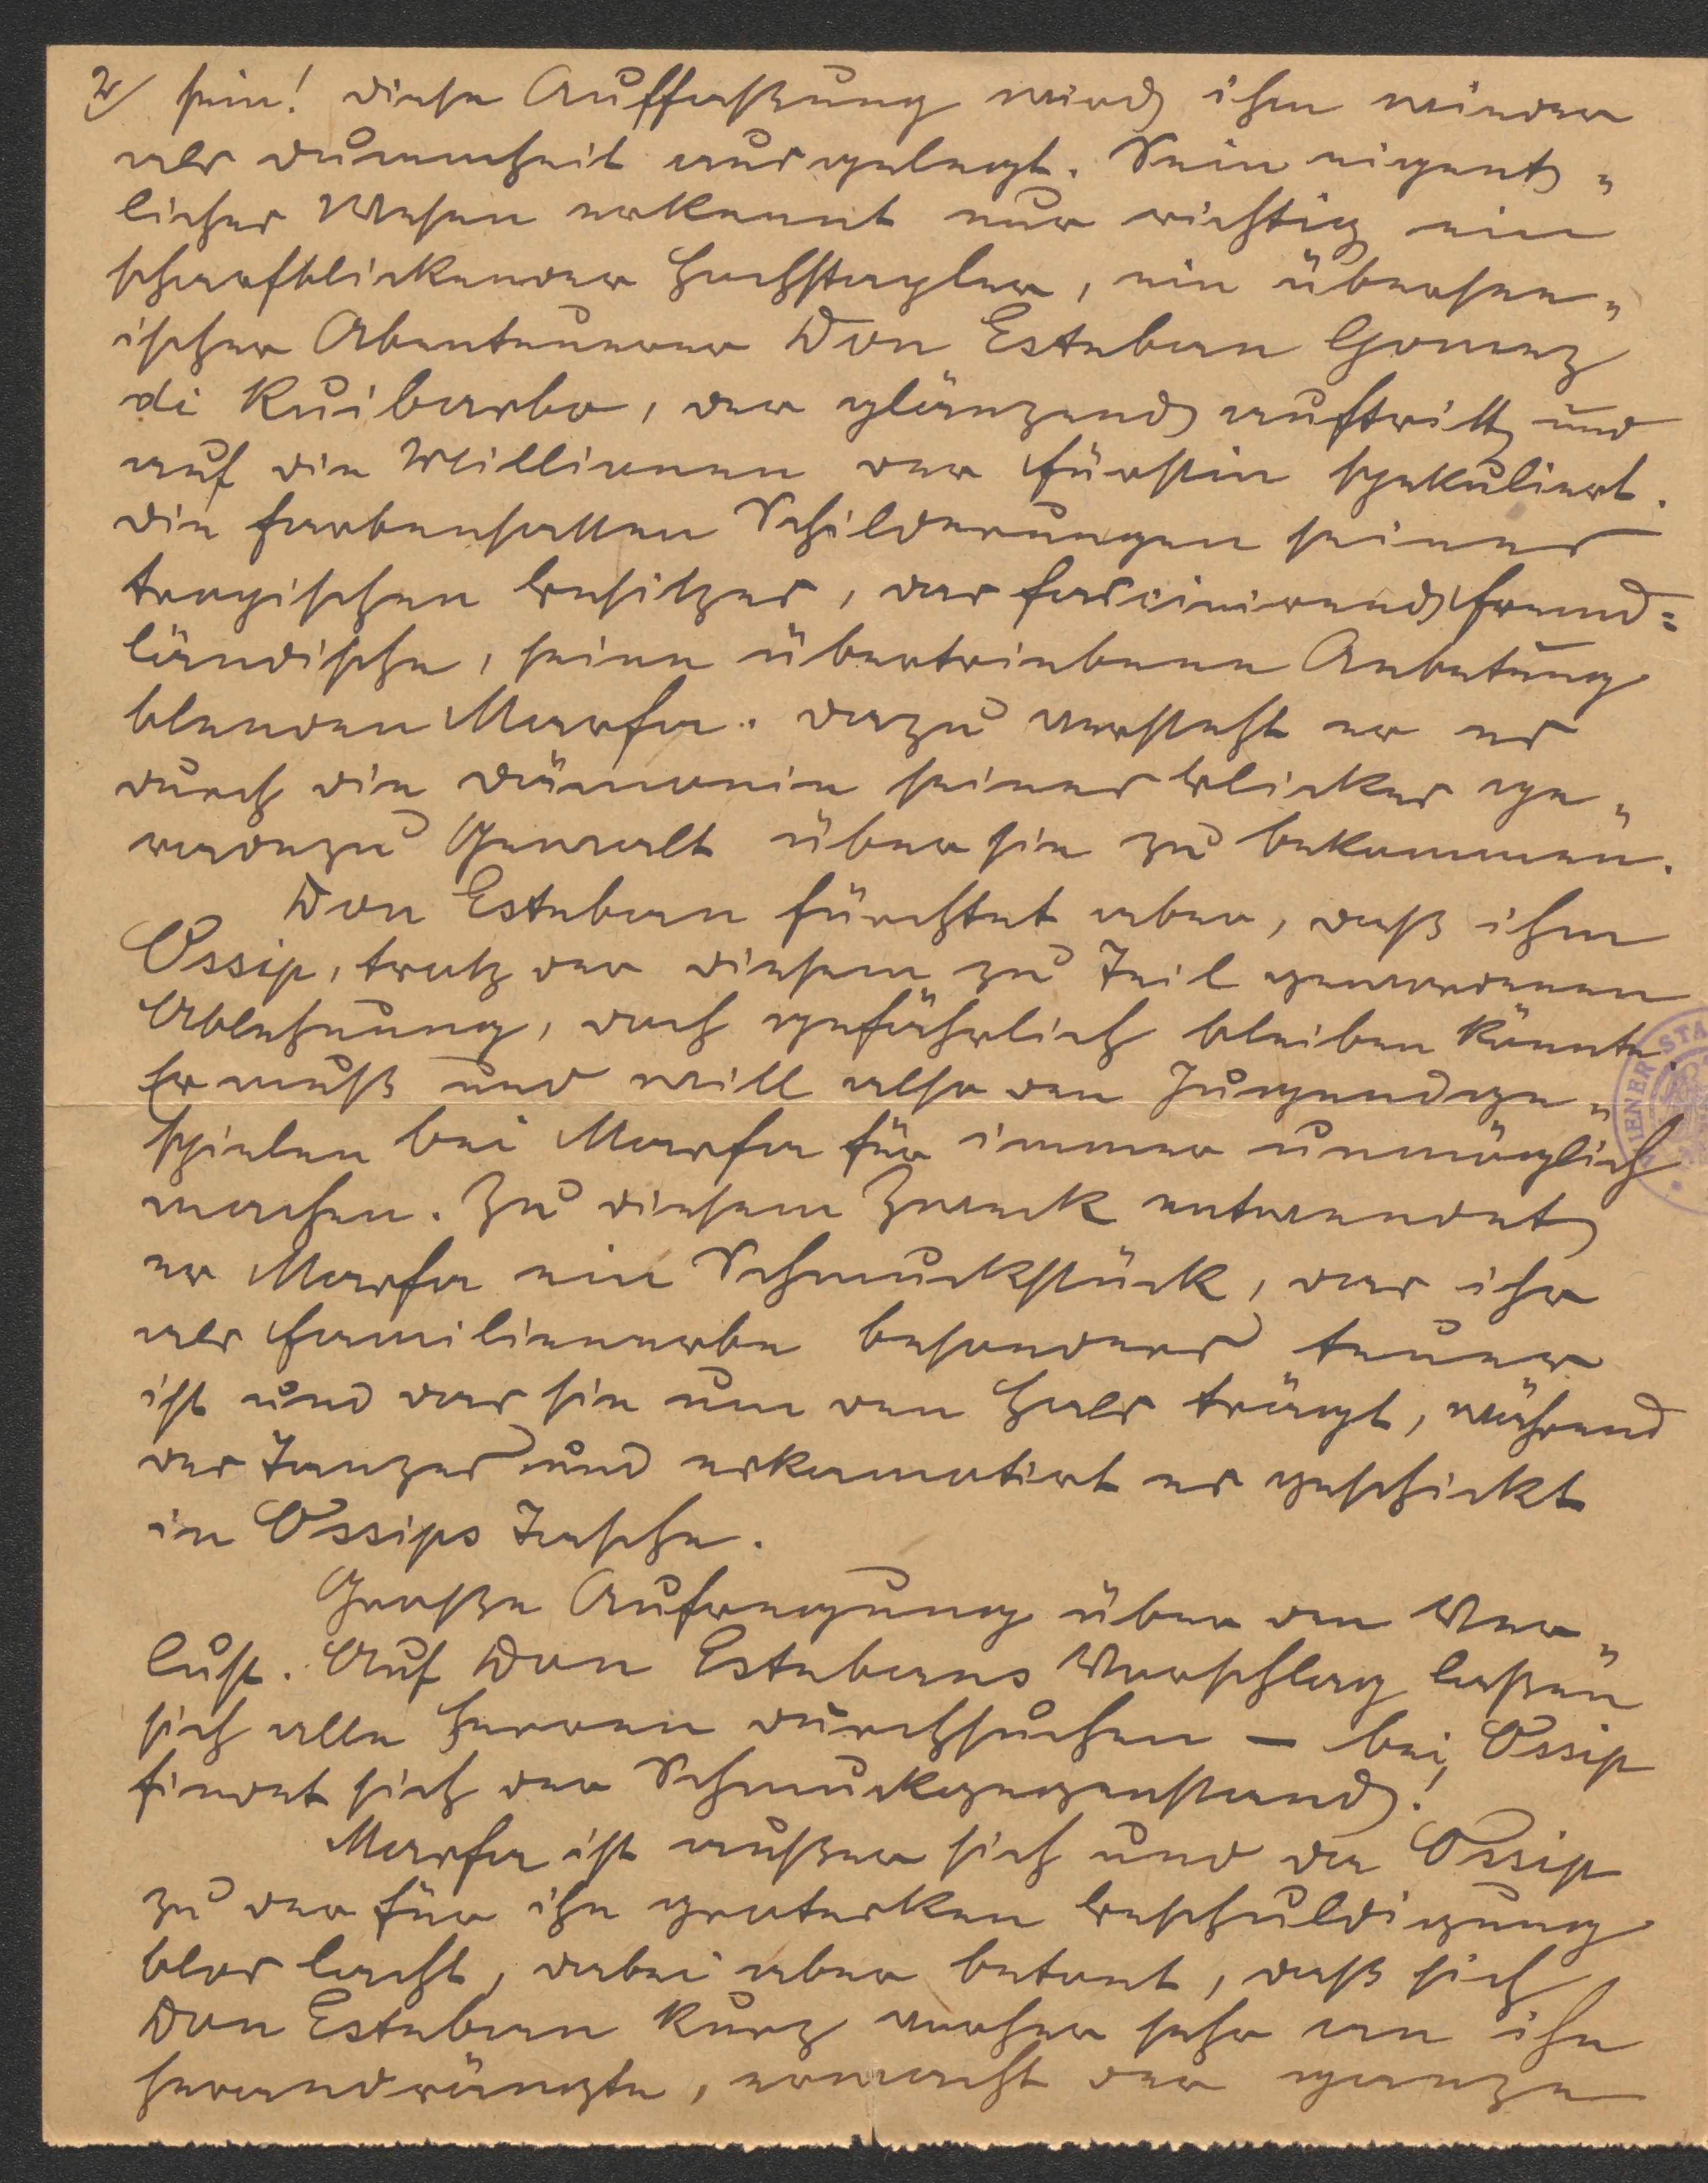 2/ sein! Diese Auffaßung wird ihm wieder
als Dummheit ausgelegt. Sein eigent„
liches Wesen erkennt nur richtig ein
scharfblickender Hochstapler, ein übersee„
ischer Abenteuerer Don Esteban Gomez
di Ruibarbo, der glänzend auftritt und
auf die Millionen der Fürstin spekuliert.
Die farbensatten Schilderungen seines
tropischen Besitzes, das fascinierend fremd=
ländische, seine übertriebene Anbetung
blenden Marfa. Dazu versteht er es
durch die Dämonie seines Blickes ge„
radezu Gewalt über sie zu bekommen.
Don Esteban fürchtet aber, daß ihm
Ossip, trotz der diesem zu Teil gewordenen
Ablehnung, doch gefährlich bleiben könnte.
Er muß und will also den Jugendge„
spielen bei Marfa für immer unmöglich
machen. Zu diesem Zweck entwendet
er Marfa ein Schmuckstück, das ihr
als Familienerbe besonders teuer
ist und das sie um den Hals trägt, während
des Tanzes und eskamotirt es geschickt
in Ossips Tasche.
Große Aufregung über den Ver„
lust. Auf Don Estebans Vorschlag laßen
sich alle Herren durchsuchen – bei Ossip
findet sich der Schmuckgegenstand!
Marfa ist außer sich und da Ossip
zu der für ihn grotesken Beschuldigung
blos lacht, dabei aber betont, daß sich
Don Esteban kurz vorher sehr an ihn
herandrängte, erwacht der ganze